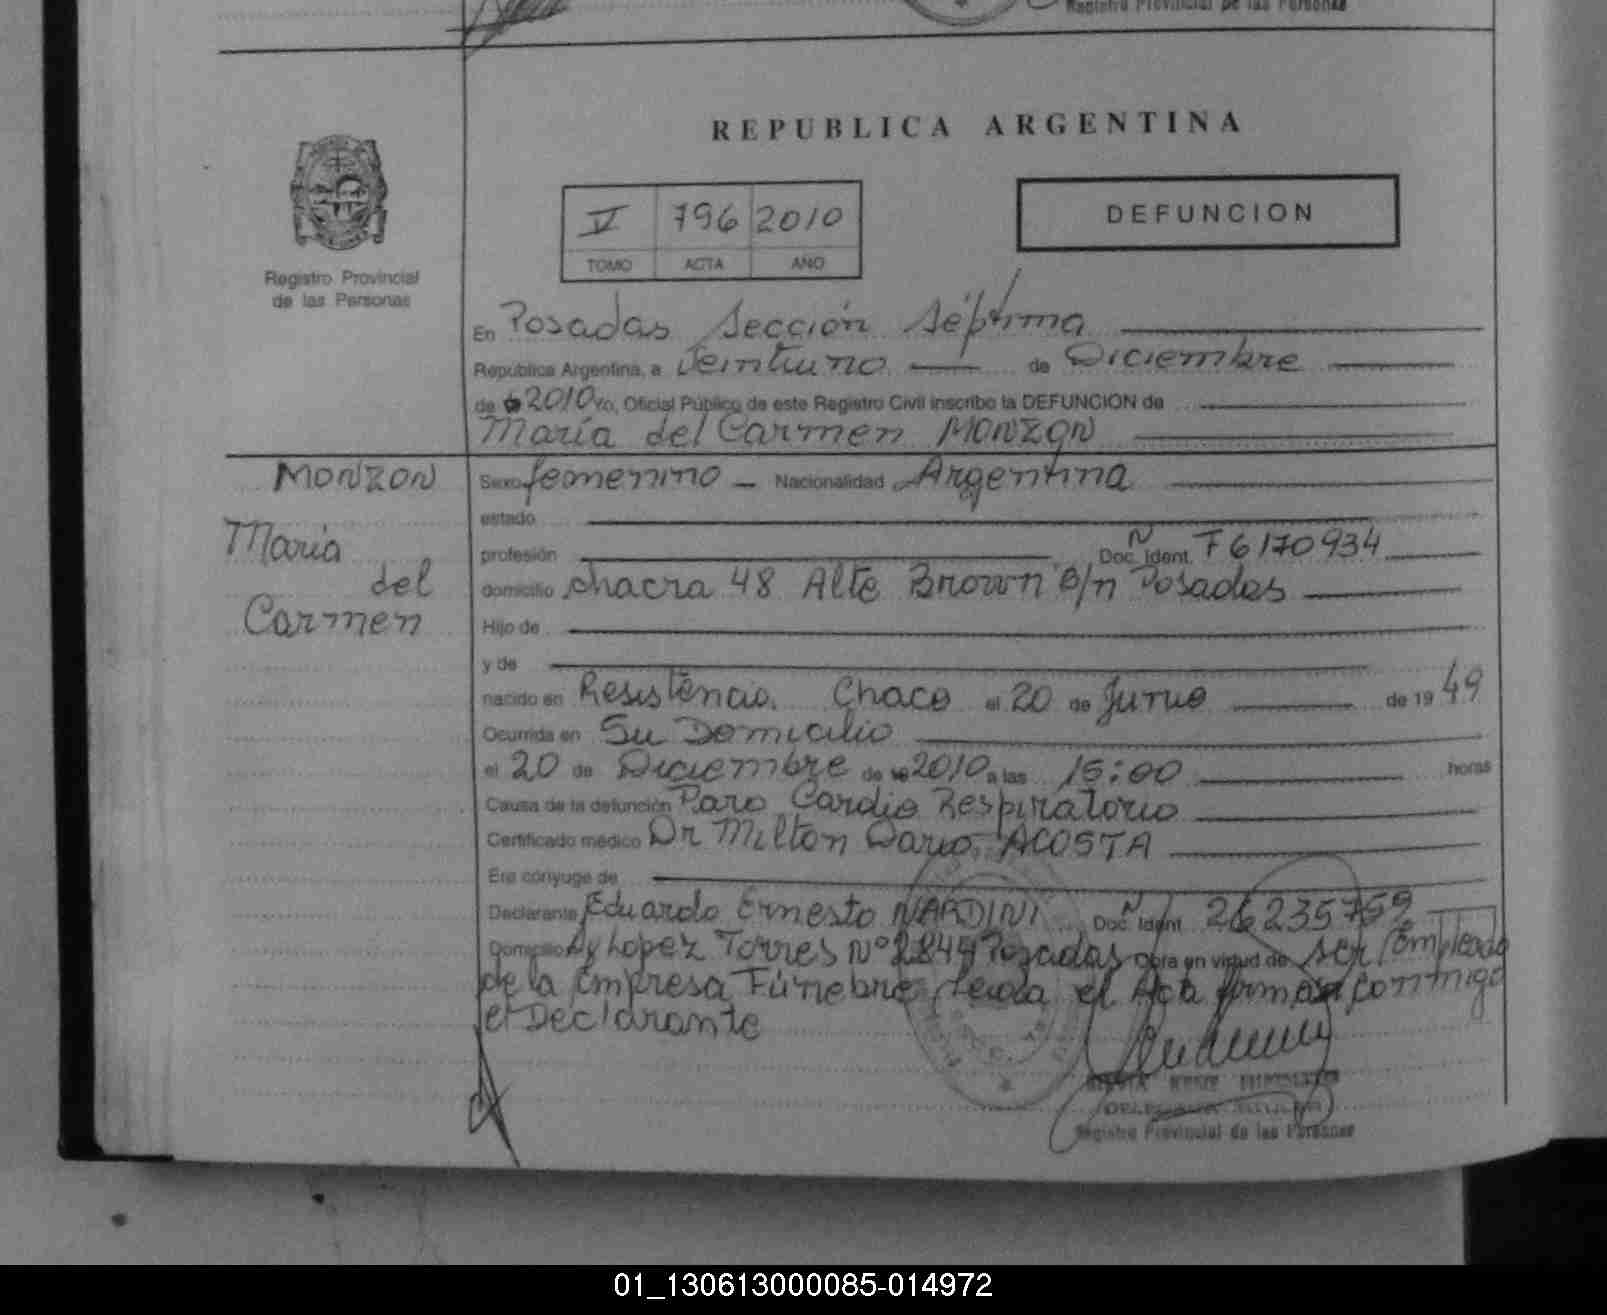 Registro Provincial de las Personas
REPUBLICA ARGENTINA
V 796 2010
TOMO ACTA AÑO
DEFUNCION
Registro Provincial
de las Personas
En Posadas Sección Séptima
República Argentina, a Veintiuno de Diciembre
de 2010 Yo, Oficial Público de este Registro Civil inscribo la DEFUNCION de
María del Carmen MONZON
MONZON
María
del
Carmen
Sexo femenino Nacionalidad Argentina
estado
profesión Doc. Ident. N F6170934
domicilio chacra 48 Alte Brown S/n Posadas
Hijo de
y de
nacido en Resistencia. Chaco el 20 de Junio de 19 49
Ocurrida en Su Domicilio
el 20 de Diciembre de 2010 a las 15:00 horas
Causa de la defunción Paro Cardio Respiratorio
Certificado médico Dr Milton Dario ACOSTA
Era cónyuge de
Declarante Eduardo Ernesto NARDINI Doc. Ident. N 26235759
Domicilio Av Lopez Torres Nº 2844 Posadas Obra en virtud de ser Empleado
de la Empresa Fúnebre Leida el Acta firma conmigo
el Declarante
Registro Provincial de las Personas
01_130613000085-014972